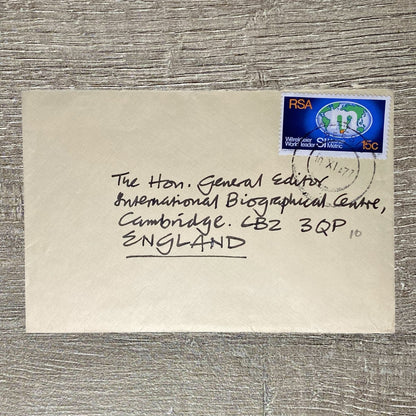 RSA
Wêreldleier SI Metriek
World leader SI Metric
15c
The Hon. General Editor
International Biographical Centre,
Cambridge. CB2 3QP
ENGLAND
10